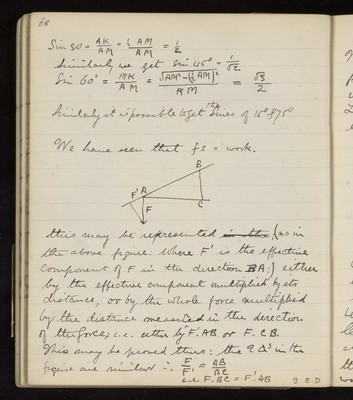 68
Sin 30 = AK/AM = ½ AM/AM = 1/2
Similarly we get Sin 45° = 1/√2
Sin 60° = MK/AM = √(AM² - (½AM)²)/AM = √3/2
Similarly it is possible to get the Sines of 15° & 75°
We have seen that fs = work.
B
F' A
F
C
this may be represented in the (as in
the above figure. Where F' is the effective
component of F in the direction BA;) either
by the effective component multiplied by its
distance, or by the whole force multiplied
by the distance measured in the direction
of the force; i.e. either by F'.AB or F.CB.
This may be proved thus: the 2 Δs in the
figure are similar ∴ F/F' = AB/BC
i.e. F.BC = F'.AB Q.E.D